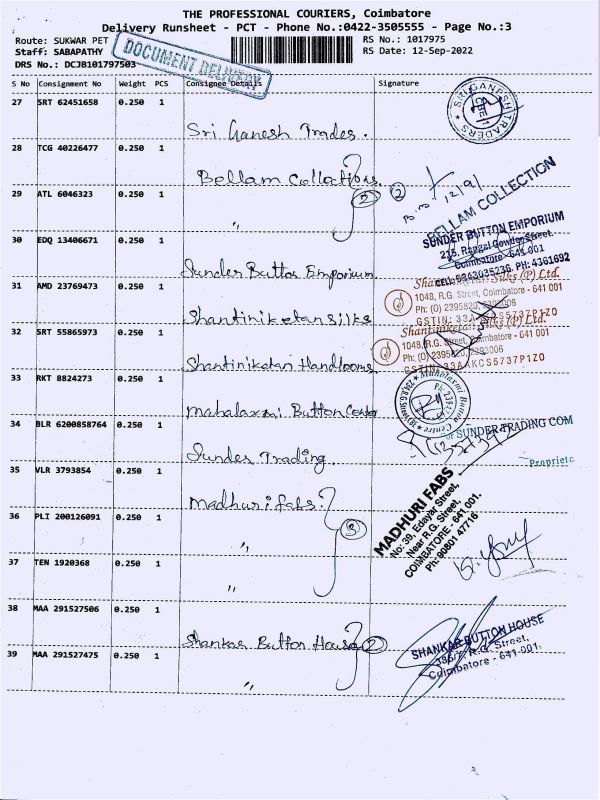 THE PROFESSIONAL COURIERS, Coimbatore
Delivery Runsheet - PCT - Phone No.:0422-3505555 - Page No.:3
Route: SUKWAR PET
Staff: SABAPATHY
DRS No.: DCJB101797503
DOCUMENT DELIVERY
RS No.: 1017975
RS Date: 12-Sep-2022
S No Consignment No Weight PCS Consignee Details Signature
27 SRT 62451658 0.250 1
Sri Ganesh Trades.
SRI GANESH TRADERS
28 TCG 40226477 0.250 1
Bellam Collections
2
2
12/9/
BELLAM COLLECTION
29 ATL 6046323 0.250 1
"
30 EDQ 13406671 0.250 1
Sunder Button Emporium
SUNDER BUTTON EMPORIUM
215, Rangai Gowder Street,
Coimbatore - 641 001
CELL: 9843035236, PH: 4361692
31 AMD 23769473 0.250 1
Shantiniketan Silks
Shantiniketan Silks (P) Ltd.
1048, R.G. Street, Coimbatore - 641 001
GSTIN: 33AAKCS5737P1Z0
32 SRT 55865973 0.250 1
Shantiniketan Handlooms
Shantiniketan Silks (P) Ltd.
1048, R.G. Street, Coimbatore - 641 001
GSTIN: 33AAKCS5737P1Z0
33 RKT 8824273 0.250 1
Mahalaxmi Button Center
Mahalaxmi Button Centre
34 BLR 6200858764 0.250 1
Sunder Trading
For SUNDER TRADING COM
Proprieto
35 VLR 3793854 0.250 1
Madhuri fabs
3
MADHURI FABS
No: 39, Edayar Street,
Near R.G. Street,
COIMBATORE - 641 001.
Ph: 80801 47716
36 PLI 200126091 0.250 1
"
37 TEN 1920368 0.250 1
"
38 MAA 291527506 0.250 1
Shankar Button House
2
SHANKAR BUTTON HOUSE
R.G. Street,
Coimbatore - 641 001.
39 MAA 291527475 0.250 1
"